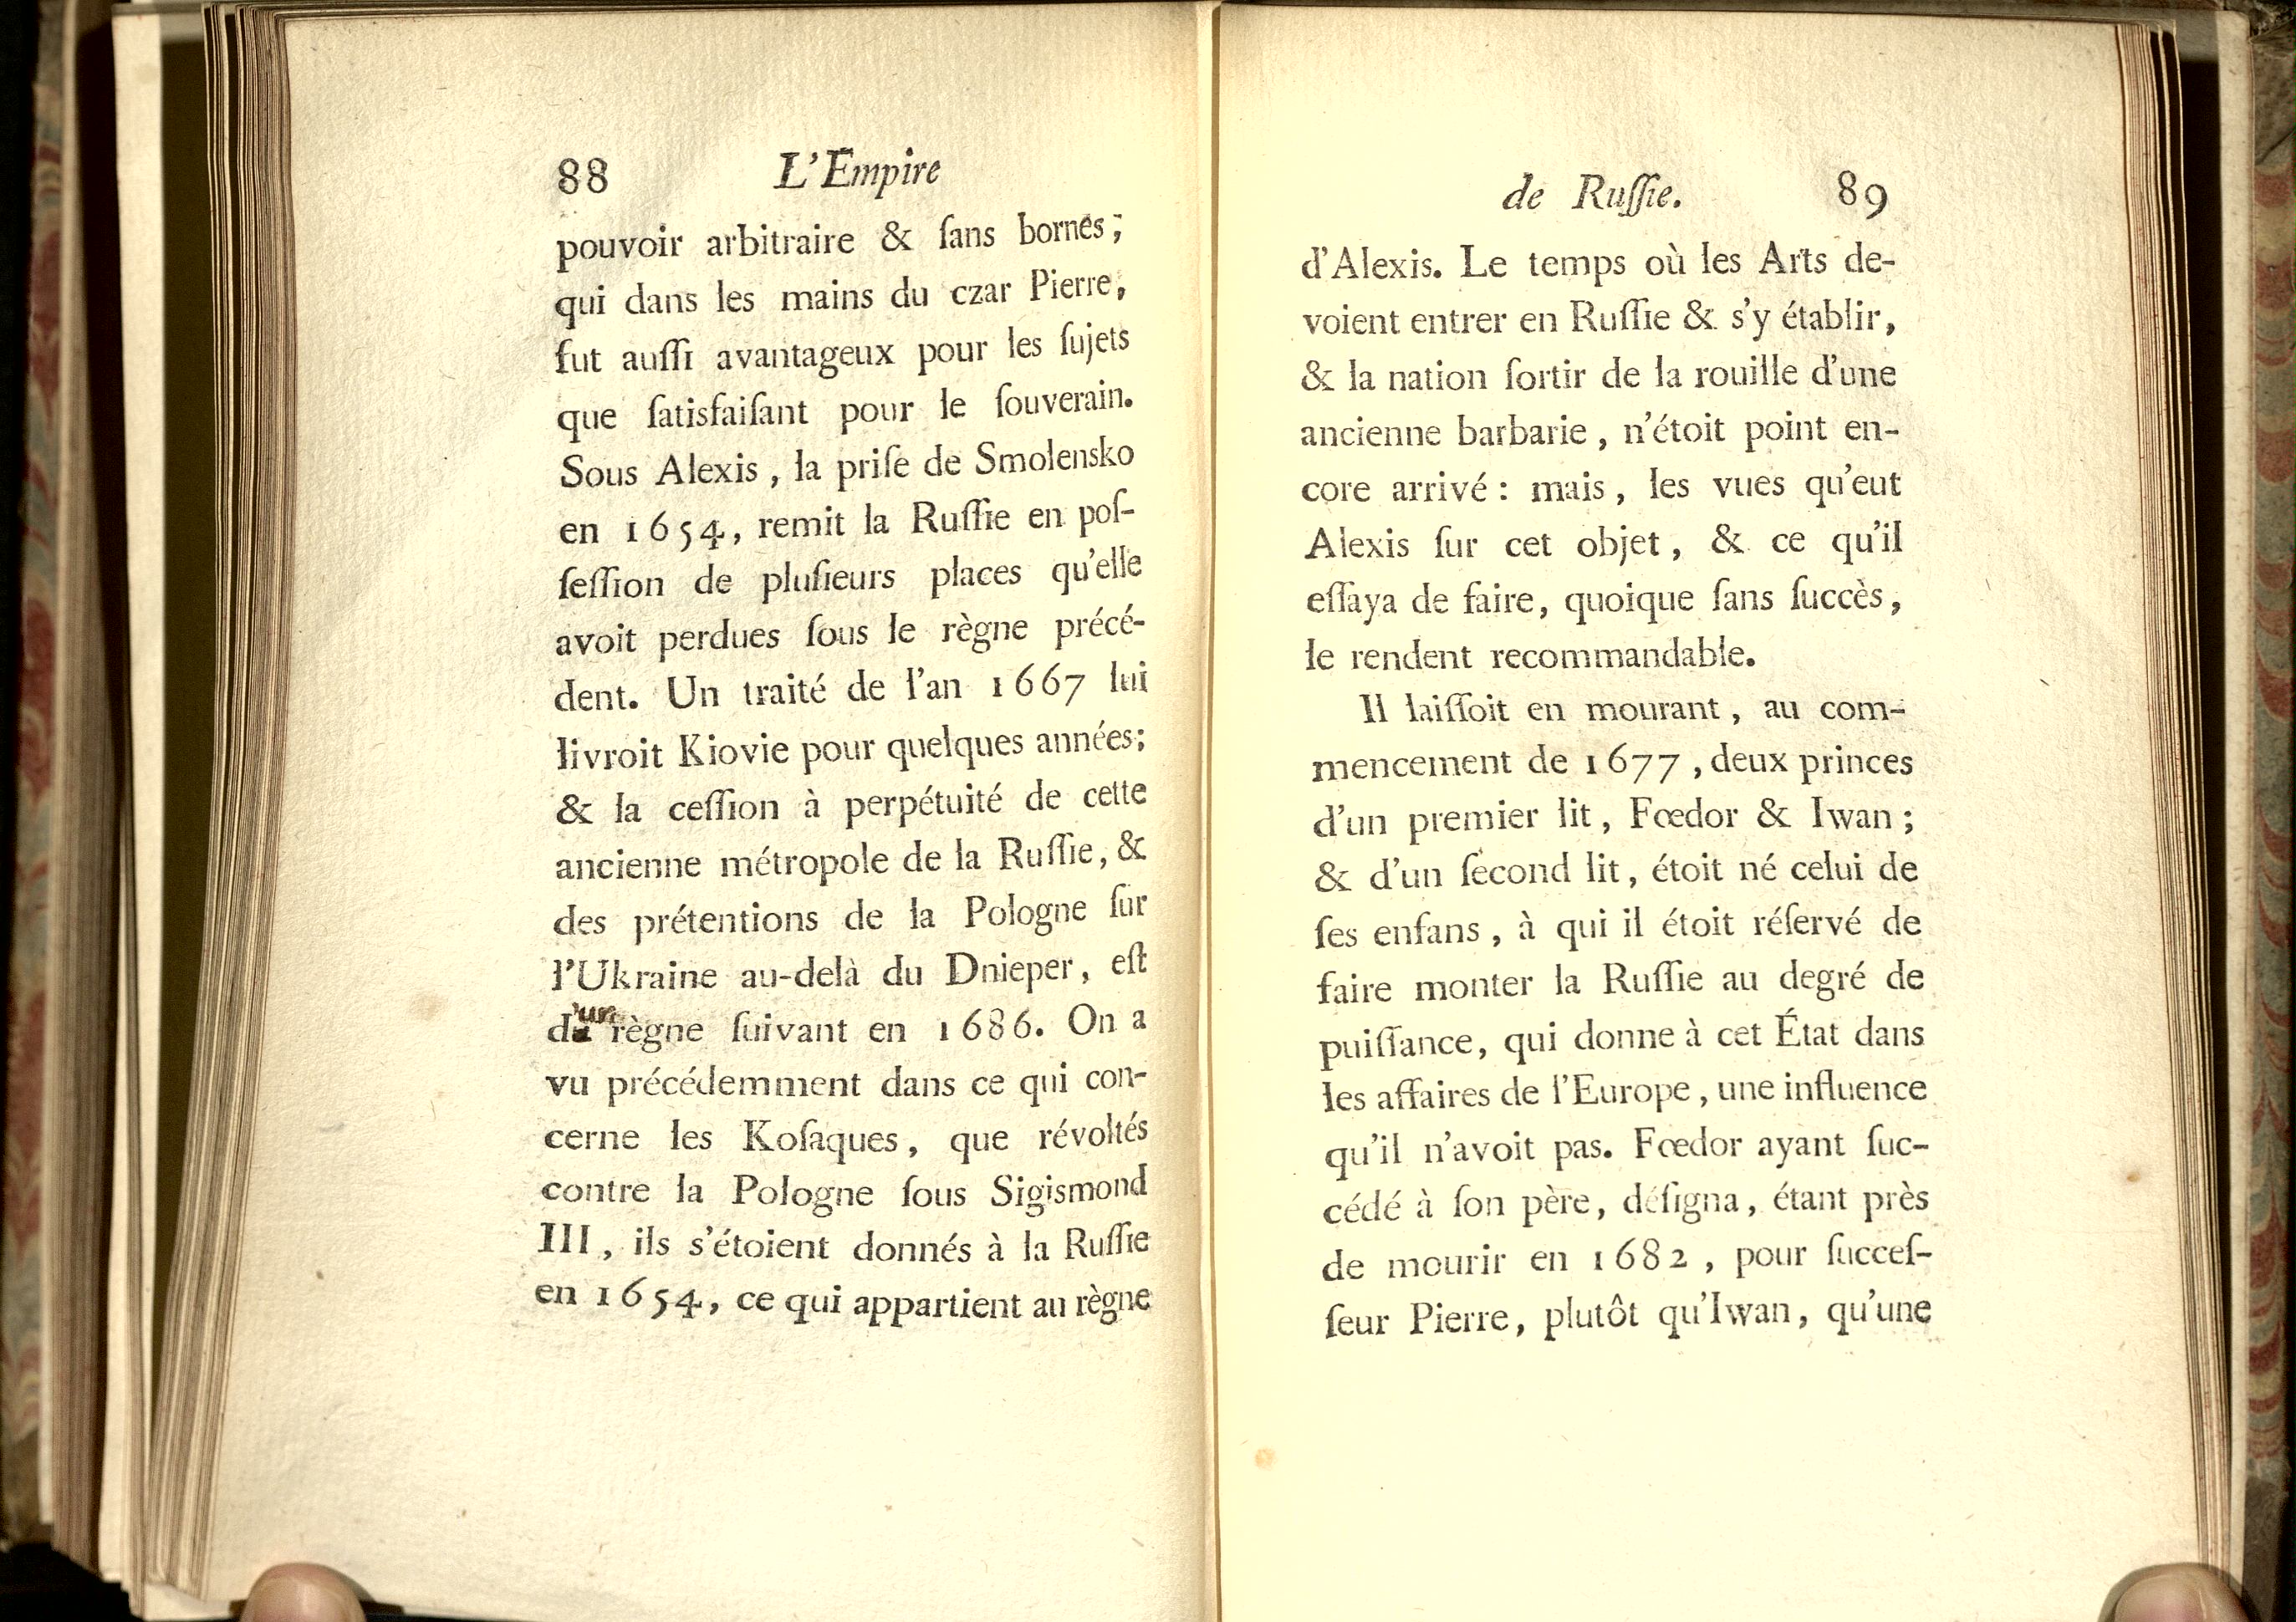 88 L'Empire
pouvoir arbitraire & ſans bornes;
qui dans les mains du czar Pierre,
fut auſſi avantageux pour les ſujets
que ſatisfaiſant pour le ſouverain.
Sous Alexis, la priſe de Smolensko
en 1654, remit la Ruſſie en poſ-
ſeſſion de pluſieurs places qu'elle
avoit perdues ſous le règne précé-
dent. Un traité de l'an 1667 lui
livroit Kiovie pour quelques années;
& la ceſſion à perpétuité de cette
ancienne métropole de la Ruſſie, &
des prétentions de la Pologne ſur
l'Ukraine au-delà du Dnieper, eſt
d'un règne ſuivant en 1686. On a
vu précédemment dans ce qui con-
cerne les Koſaques, que révoltés
contre la Pologne ſous Sigismond
III, ils s'étoient donnés à la Ruſſie
en 1654, ce qui appartient au règne
de Ruſſie. 89
d'Alexis. Le temps où les Arts de-
voient entrer en Ruſſie & s'y établir,
& la nation ſortir de la rouille d'une
ancienne barbarie, n'étoit point en-
core arrivé: mais, les vues qu'eut
Alexis ſur cet objet, & ce qu'il
eſſaya de faire, quoique ſans ſuccès,
le rendent recommandable.
Il laiſſoit en mourant, au com-
mencement de 1677, deux princes
d'un premier lit, Fœdor & Iwan;
& d'un ſecond lit, étoit né celui de
ſes enfans, à qui il étoit réſervé de
faire monter la Ruſſie au degré de
puiſſance, qui donne à cet État dans
les affaires de l'Europe, une influence
qu'il n'avoit pas. Fœdor ayant ſuc-
cédé à ſon père, déſigna, étant près
de mourir en 1682, pour ſucceſ-
ſeur Pierre, plutôt qu'Iwan, qu'une